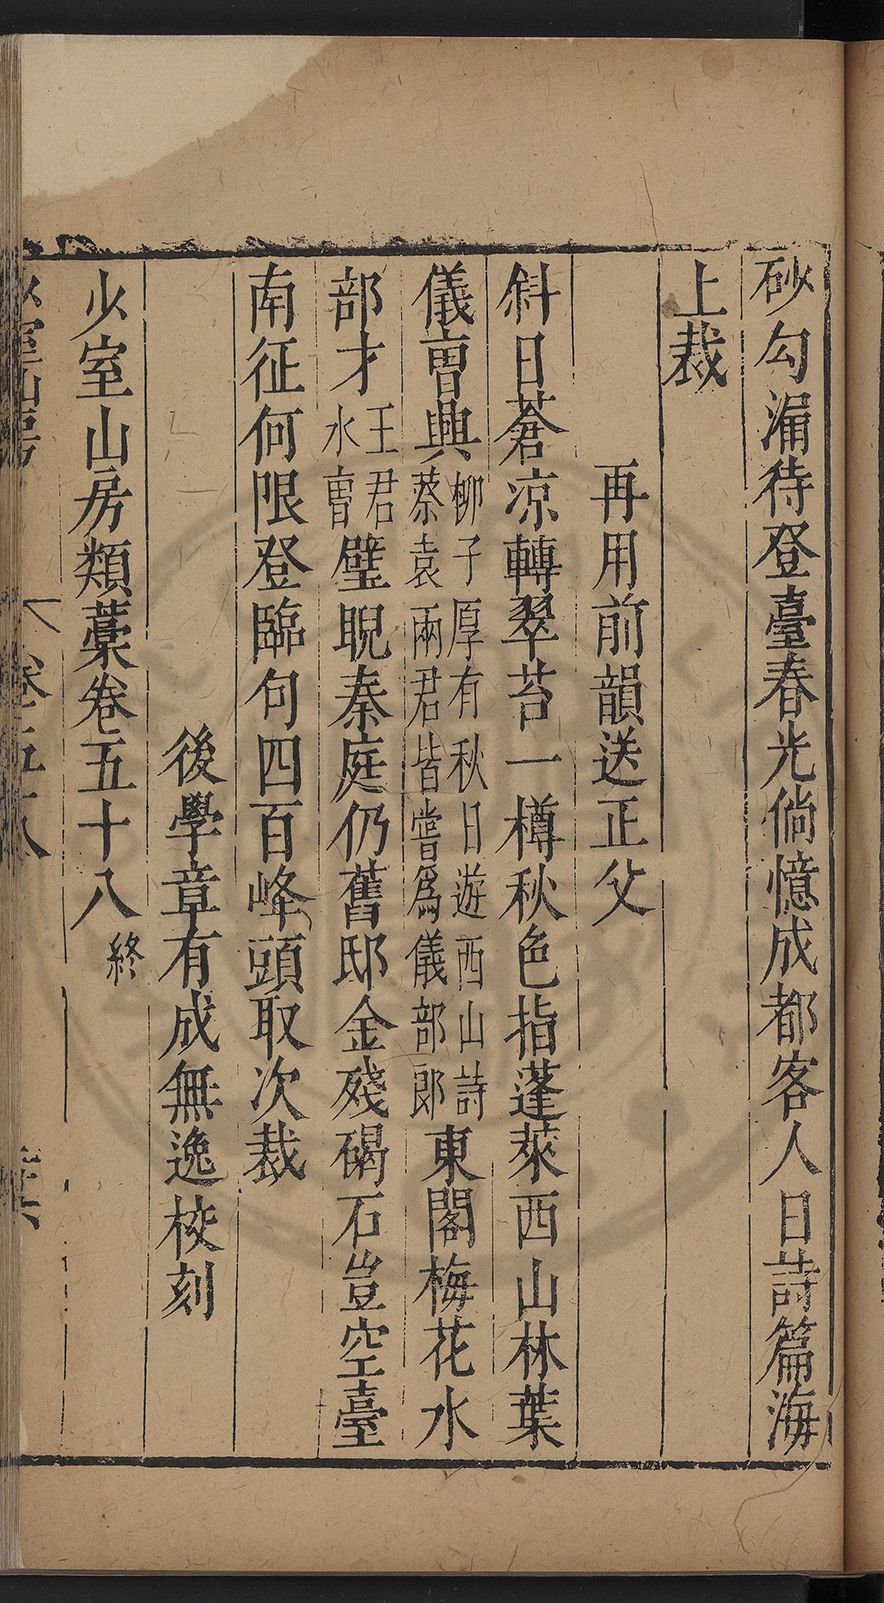 砂勾漏待登臺春光倘憶成都客人日詩篇海
上裁
再用前韻送正父
斜日蒼凉轉翠苔一樽秋色指蓬萊西山林葉
儀曹興柳子厚有秋日遊西山詩蔡袁兩君皆嘗爲儀部郎東閣梅花水
部才王君水曹壁睨秦庭仍舊邸金殘碣石豈空臺
南征何限登臨句四百峰頭取次裁
後學章有成無逸校刻
少室山房類藁卷五十八終
少室山房 卷五十八